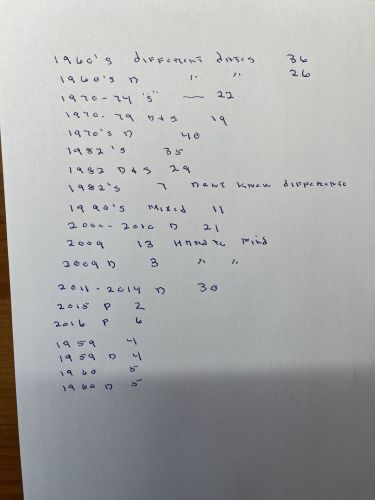 1960's different dates 36
1960's D " " 26
1970-74 "S" — 22
1970-79 D+S 19
1970's D 40
1982's 35
1982 D+S 29
1982's 7 dont know difference
1990's mixed 11
2000-2010 D 21
2009 13 Hard to find
2009 D 3 " "
2011-2014 D 30
2015 P 2
2016 P 6
1959 4
1959 D 4
1960 5
1960 D 5